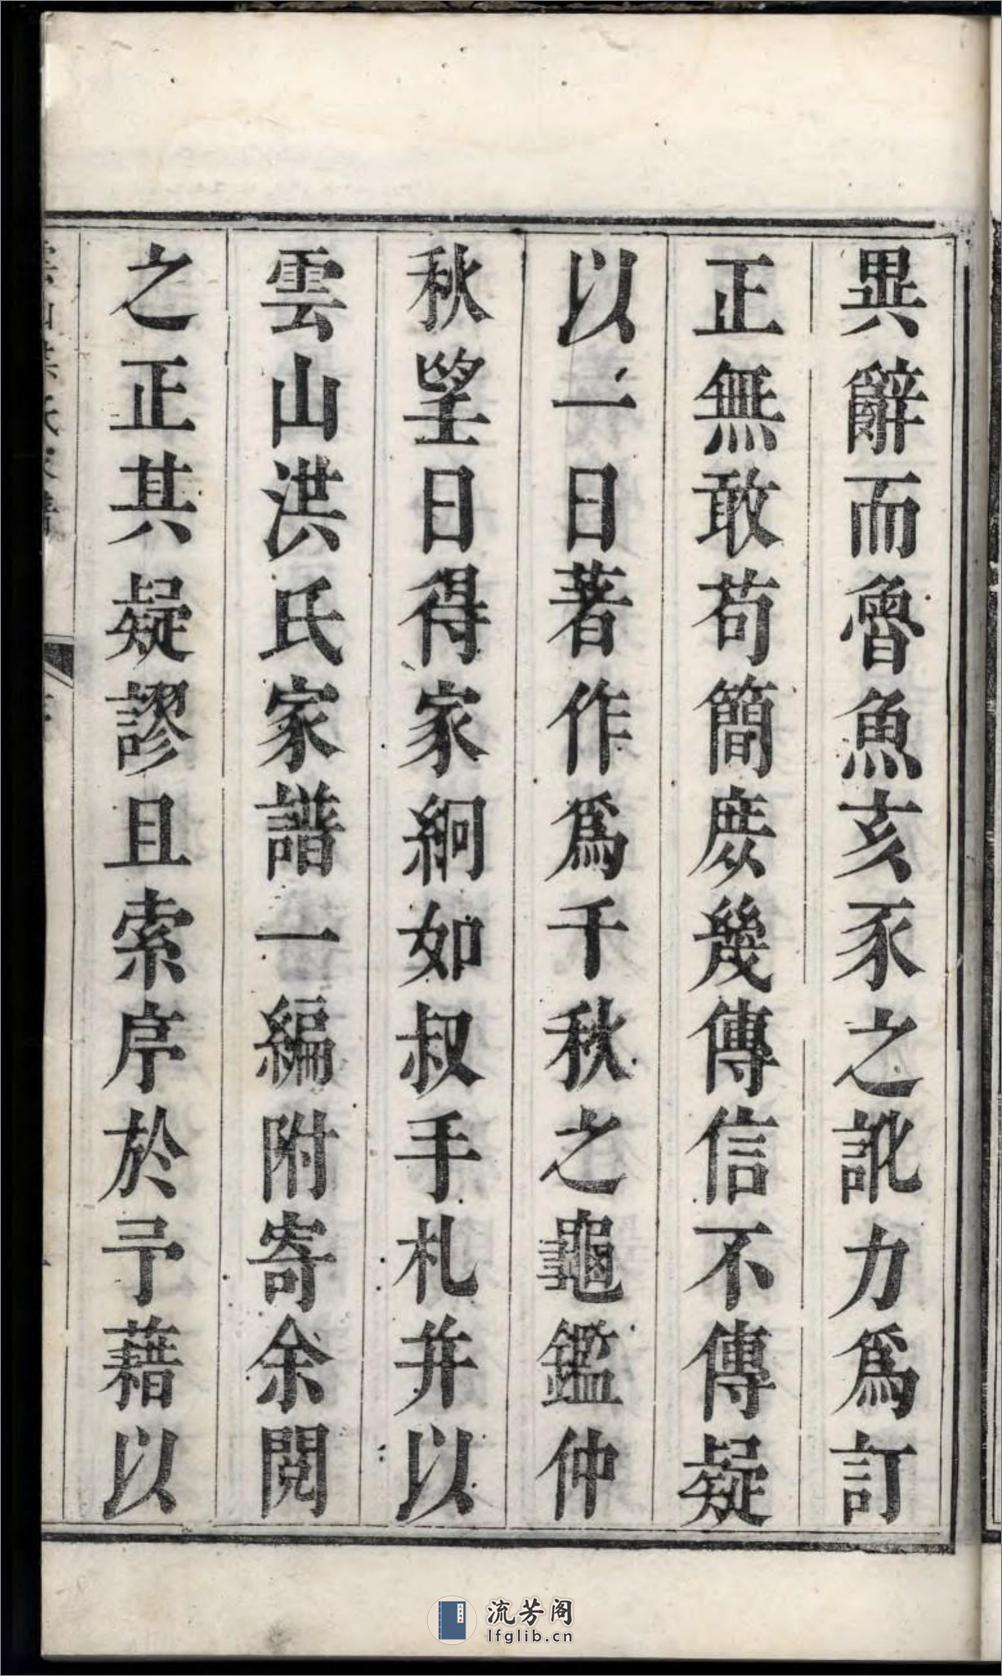 異辭而魯魚亥豕之訛力爲訂
正無敢苟簡庶幾傳信不傳疑
以一日著作爲千秋之龜鑑仲
秋望日得家絅如叔手札并以
雲山洪氏家譜一編附寄余閱
之正其疑謬且索序於予藉以
流芳阁
lfglib.cn